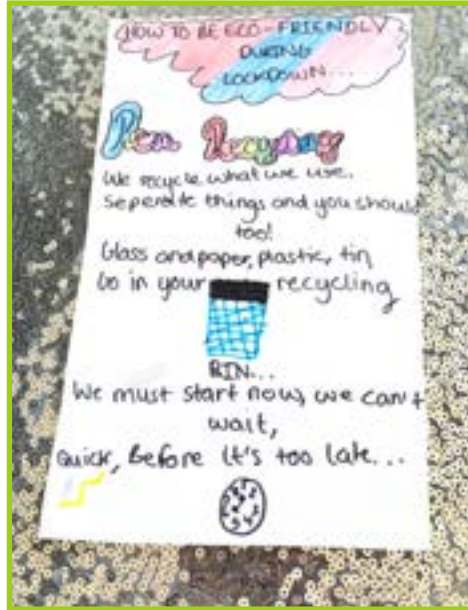 HOW TO BE ECO-FRIENDLY
DURING
LOCKDOWN...
Recycling
We recycle what we use.
Seperate things and you should
too!
Glass and paper, plastic, tin,
Go in your recycling
BIN...
We must start now, we can't
wait,
Quick, Before it's too late...